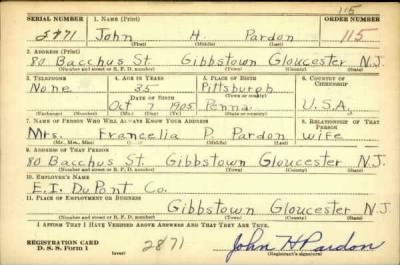 115
SERIAL NUMBER 1. NAME (Print) ORDER NUMBER
2871 John H. Pardon 115
(First) (Middle) (Last)
2. ADDRESS (Print)
80 Bacchus St. Gibbstown Gloucester N.J.
(Number and street or R. F. D. number) (Town) (County) (State)
3. TELEPHONE 4. AGE IN YEARS 5. PLACE OF BIRTH 6. COUNTRY OF CITIZENSHIP
None 35 Pittsburgh
DATE OF BIRTH (Town or county)
Oct 7 1905 Penna. U.S.A.
(Exchange) (Number) (Mo.) (Day) (Yr.) (State or country)
7. NAME OF PERSON WHO WILL ALWAYS KNOW YOUR ADDRESS 8. RELATIONSHIP OF THAT PERSON
Mrs. Francelia P. Pardon wife
(Mr., Mrs., Miss) (First) (Middle) (Last)
9. ADDRESS OF THAT PERSON
80 Bacchus St. Gibbstown Gloucester N.J.
(Number and street or R. F. D. number) (Town) (County) (State)
10. EMPLOYER'S NAME
E.I. DuPont Co.
11. PLACE OF EMPLOYMENT OR BUSINESS
Gibbstown Gloucester N.J.
(Number and street or R. F. D. number) (Town) (County) (State)
I AFFIRM THAT I HAVE VERIFIED ABOVE ANSWERS AND THAT THEY ARE TRUE.
REGISTRATION CARD
D. S. S. Form 1 (over) 2871 John H Pardon
(Registrant's signature)